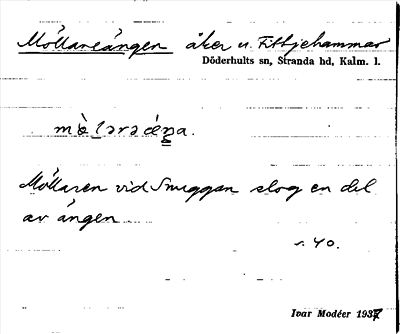 Möllareängen åker u. Fittjehammar
Döderhults sn, Stranda hd, Kalm. l.
Möllaren vid Smuggan slog en del
av ängen
s. 40.
Ivar Modéer 1937